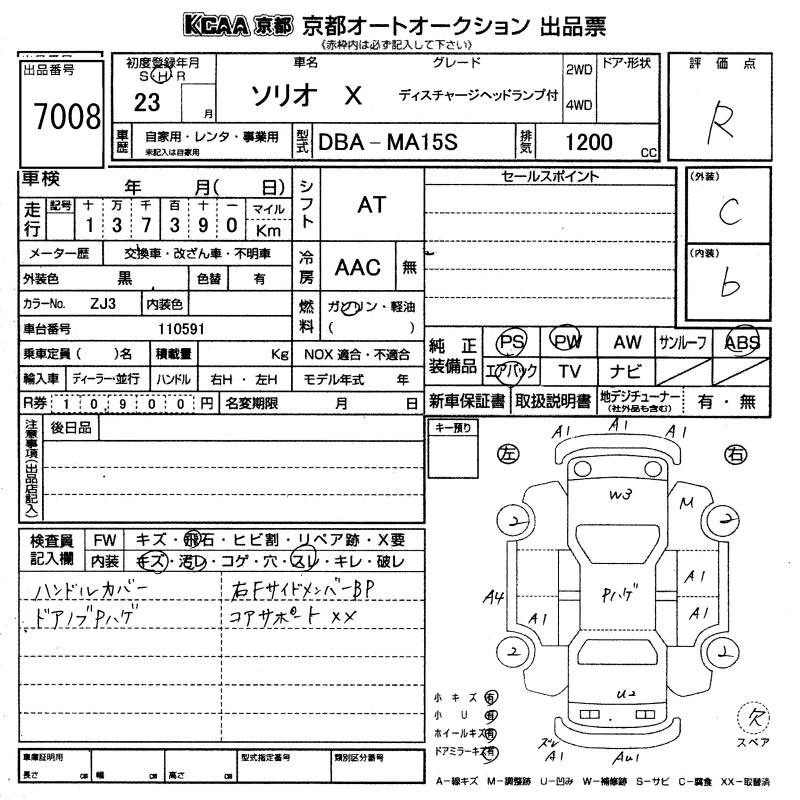 KCAA 京都 京都オートオークション 出品票
《赤枠内は必ず記入して下さい》
出品番号
7008
初度登録年月
S H R
23 月
車名
グレード
ソリオ X ディスチャージヘッドランプ付
2WD
4WD
ドア・形状
車歴
自家用・レンタ・事業用
未記入は自家用
型式
DBA-MA15S
排気
1200 CC
評価点
R
車検 年 月( 日)
走行
記号 十 万 千 百 十 一
1 3 7 3 9 0
マイル
Km
シフト
AT
セールスポイント
(外装)
C
(内装)
b
メーター歴 交換車・改ざん車・不明車
冷房
AAC 無
外装色 黒 色替 有
カラーNo. ZJ3 内装色
燃料
ガソリン・軽油
( )
車台番号 110591
乗車定員( )名 積載量 Kg NOX 適合・不適合
輸入車 ディーラー・並行 ハンドル 右H・左H モデル年式 年
R券 10,900 円 名変期限 月 日
純正装備品
PS PW AW サンルーフ ABS
エアバック TV ナビ
新車保証書 取扱説明書 地デジチューナー (社外品も含む) 有・無
注意事項(出品店記入)
後日品
キー預り
検査員記入欄
FW キズ・飛石・ヒビ割・リペア跡・X要
内装 キズ・汚レ・コゲ・穴・スレ・キレ・破レ
ハンドルカバー 右FサイドメンバーBP
ドアノブPハゲ コアサポート XX
A1 A1 A1
左 右
W3 M
2 2
A1
A4 Pハゲ
A1 A1
2 2
U2
小キズ 有
小U 有
ホイールキズ 有
ドアミラーキズ 有
ズレ
A1 AU1
欠
スペア
車庫証明用
長さ cm 幅 cm 高さ cm
型式指定番号
類別区分番号
A-線キズ M-調整跡 U-凹み W-補修跡 S-サビ C-腐食 XX-取替済